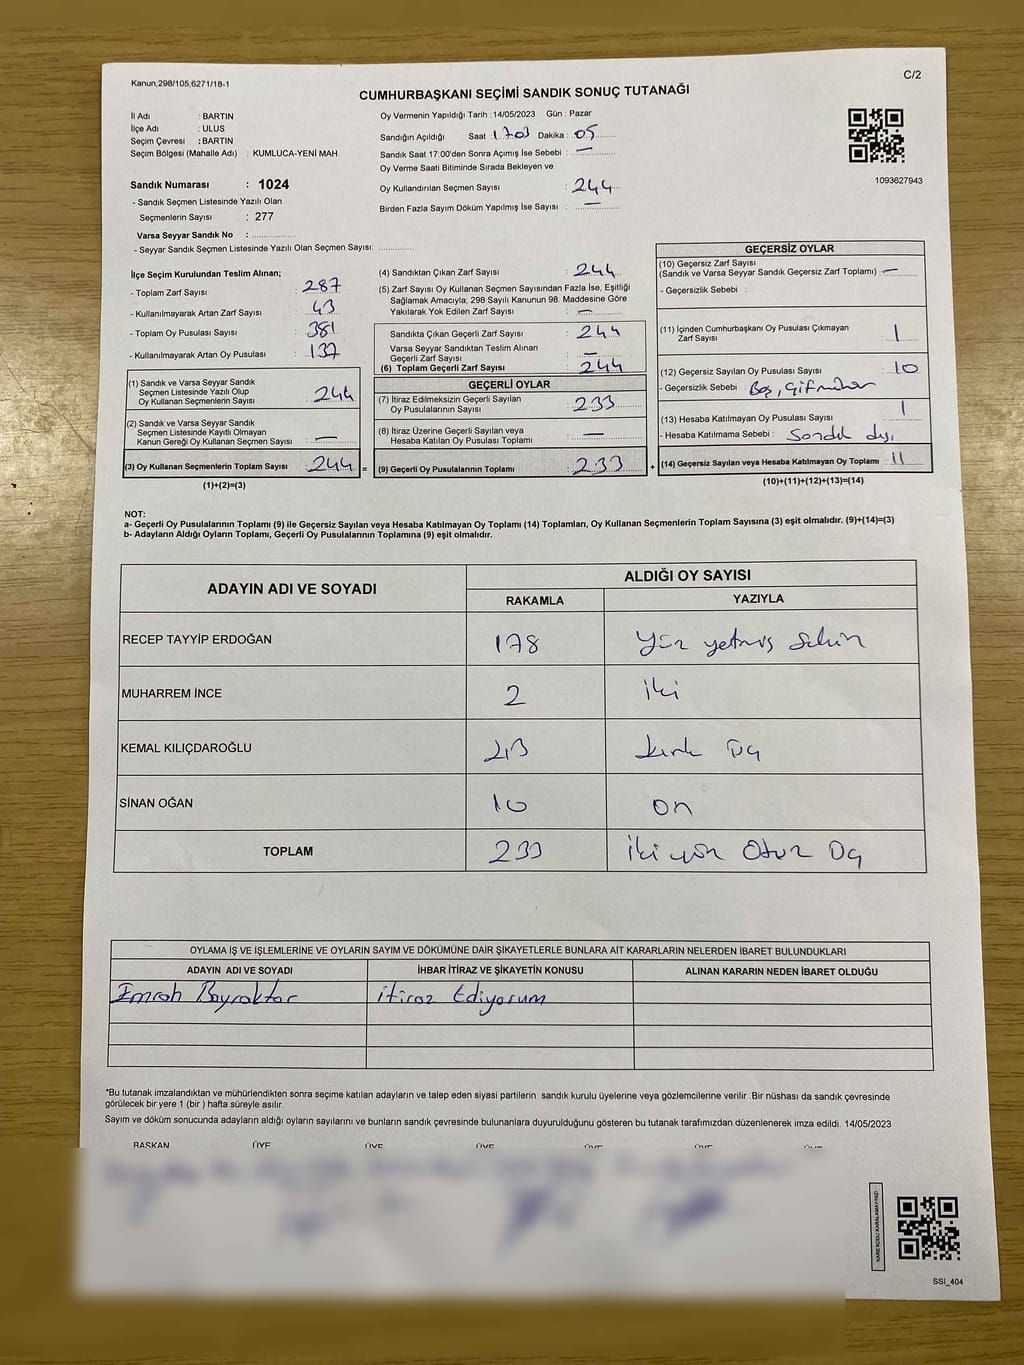 Kanun,298/105,6271/18-1
C/2
CUMHURBAŞKANI SEÇİMİ SANDIK SONUÇ TUTANAĞI
İl Adı : BARTIN
İlçe Adı : ULUS
Seçim Çevresi : BARTIN
Seçim Bölgesi (Mahalle Adı) : KUMLUCA-YENİ MAH.
Sandık Numarası : 1024
- Sandık Seçmen Listesinde Yazılı Olan
Seçmenlerin Sayısı : 277
Varsa Seyyar Sandık No :
- Seyyar Sandık Seçmen Listesinde Yazılı Olan Seçmen Sayısı:
Oy Vermenin Yapıldığı Tarih : 14/05/2023 Gün : Pazar
Sandığın Açıldığı Saat : Dakika : 05
Sandık Saat 17:00'den Sonra Açılmış İse Sebebi : —
Oy Verme Saati Bitiminde Sırada Bekleyen ve
Oy Kullandırılan Seçmen Sayısı : 244
Birden Fazla Sayım Döküm Yapılmış İse Sayısı : —
1093627943
İlçe Seçim Kurulundan Teslim Alınan;
- Toplam Zarf Sayısı : 287
- Kullanılmayarak Artan Zarf Sayısı : 43
- Toplam Oy Pusulası Sayısı : 381
- Kullanılmayarak Artan Oy Pusulası : 137
(1) Sandık ve Varsa Seyyar Sandık
Seçmen Listesinde Yazılı Olup
Oy Kullanan Seçmenlerin Sayısı : 244
(2) Sandık ve Varsa Seyyar Sandık
Seçmen Listesinde Kayıtlı Olmayan
Kanun Gereği Oy Kullanan Seçmen Sayısı : —
(3) Oy Kullanan Seçmenlerin Toplam Sayısı : 244 =
(1)+(2)=(3)
(4) Sandıktan Çıkan Zarf Sayısı : 244
(5) Zarf Sayısı Oy Kullanan Seçmen Sayısından Fazla İse, Eşitliği
Sağlamak Amacıyla; 298 Sayılı Kanunun 98. Maddesine Göre
Yakılarak Yok Edilen Zarf Sayısı : —
Sandıkta Çıkan Geçerli Zarf Sayısı : 244
Varsa Seyyar Sandıktan Teslim Alınan
Geçerli Zarf Sayısı : —
(6) Toplam Geçerli Zarf Sayısı : 244
GEÇERLİ OYLAR
(7) İtiraz Edilmeksizin Geçerli Sayılan
Oy Pusulalarının Sayısı : 233
(8) İtiraz Üzerine Geçerli Sayılan veya
Hesaba Katılan Oy Pusulası Toplamı : —
(9) Geçerli Oy Pusulalarının Toplamı : 233 +
GEÇERSİZ OYLAR
(10) Geçersiz Zarf Sayısı
(Sandık ve Varsa Seyyar Sandık Geçersiz Zarf Toplamı) : —
- Geçersizlik Sebebi :
(11) İçinden Cumhurbaşkanı Oy Pusulası Çıkmayan
Zarf Sayısı : 1
(12) Geçersiz Sayılan Oy Pusulası Sayısı : 10
- Geçersizlik Sebebi : Boş, Çift mühür
(13) Hesaba Katılmayan Oy Pusulası Sayısı : 1
- Hesaba Katılmama Sebebi : Sandık dışı
(14) Geçersiz Sayılan veya Hesaba Katılmayan Oy Toplamı : 11
(10)+(11)+(12)+(13)=(14)
NOT:
a- Geçerli Oy Pusulalarının Toplamı (9) ile Geçersiz Sayılan veya Hesaba Katılmayan Oy Toplamı (14) Toplamları, Oy Kullanan Seçmenlerin Toplam Sayısına (3) eşit olmalıdır. (9)+(14)=(3)
b- Adayların Aldığı Oyların Toplamı, Geçerli Oy Pusulalarının Toplamına (9) eşit olmalıdır.
ADAYIN ADI VE SOYADI ALDIĞI OY SAYISI
RAKAMLA YAZIYLA
RECEP TAYYİP ERDOĞAN 178 Yüz yetmiş Sekiz
MUHARREM İNCE 2 iki
KEMAL KILIÇDAROĞLU 43 kırk üç
SİNAN OĞAN 10 on
TOPLAM 233 İki yüz Otuz Üç
OYLAMA İŞ VE İŞLEMLERİNE VE OYLARIN SAYIM VE DÖKÜMÜNE DAİR ŞİKAYETLERLE BUNLARA AİT KARARLARIN NELERDEN İBARET BULUNDUKLARI
ADAYIN ADI VE SOYADI İHBAR İTİRAZ VE ŞİKAYETİN KONUSU ALINAN KARARIN NEDEN İBARET OLDUĞU
Emrah Bayraktar itiraz Ediyorum
*Bu tutanak imzalandıktan ve mühürlendikten sonra seçime katılan adayların ve talep eden siyasi partilerin sandık kurulu üyelerine veya gözlemcilerine verilir. Bir nüshası da sandık çevresinde
görülecek bir yere 1 (bir ) hafta süreyle asılır.
Sayım ve döküm sonucunda adayların aldığı oyların sayılarını ve bunların sandık çevresinde bulunanlara duyurulduğunu gösteren bu tutanak tarafımızdan düzenlenerek imza edildi. 14/05/2023
BAŞKAN ÜYE ÜYE ÜYE ÜYE ÜYE ÜYE
KARE KODU KARALAMAYINIZ!
SSI_404